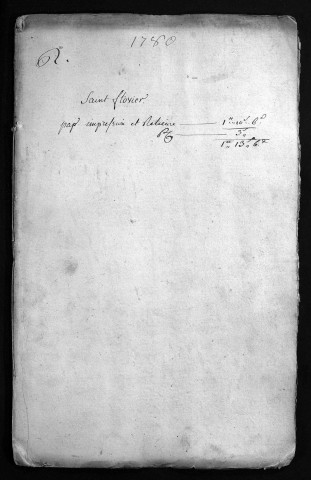 1788
R.
Saint flovier
pap.r impression et Reliure — 1ᵗᵗ 10ˢ 6ᵈ
3ˢ
1ᵗᵗ 13ˢ 6ᵈ